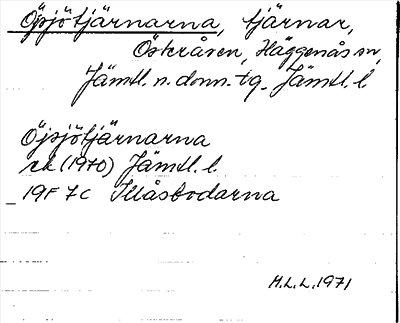 Öjsjötjärnarna, tjärnar,
Österåsen, Häggenås sn,
Jämtl. n. dom. tg. Jämtl. l
Öjsjötjärnarna
rk (1970) Jämtl. l.
19F 7C Illåsbodarna
H.L.L. 1971